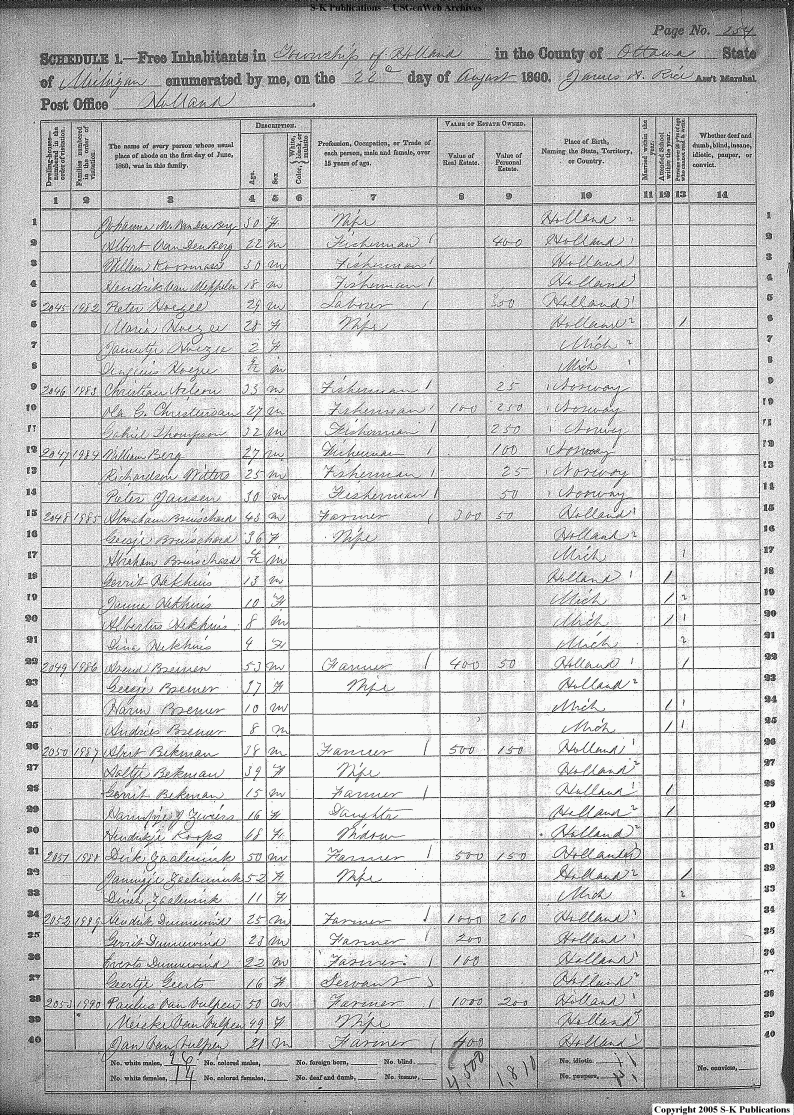 S-K Publications – USGenWeb Archives
Page No. 254
SCHEDULE 1.—Free Inhabitants in Township of Holland in the County of Ottawa State
of Michigan enumerated by me, on the 22d day of August 1860. James A. Rice Ass't Marshal
Post Office Holland
Dwelling-houses numbered in the order of visitation.
Families numbered in the order of visitation.
The name of every person whose usual place of abode on the first day of June, 1860, was in this family.
DESCRIPTION.
Age.
Sex
Color, White, black, or mulatto
Profession, Occupation, or Trade of each person, male and female, over 15 years of age.
VALUE OF ESTATE OWNED.
Value of Real Estate.
Value of Personal Estate.
Place of Birth, Naming the State, Territory, or Country.
Married within the year.
Attended School within the year.
Whether deaf and dumb, blind, insane, idiotic, pauper, or convict.
1 2 3 4 5 6 7 8 9 10 11 12 13 14
1 Van den Berg 30 F Wife Holland 2 1
2 Albert Van Den Berg 22 m Fisherman 1 400 Holland 1 2
3 Willem 30 m Fisherman 1 Holland 3
4 Hendrik Van 18 m Fisherman 1 Holland 1 4
5 2045 1982 Pieter Hoezee 29 m Labourer 1 50 Holland 1 5
6 Maria Hoezee 28 F Wife Holland 2 1 6
7 Jannetje Hoezee 2 F Mich 2 7
8 Hoezee m Mich 1 8
9 2046 1983 Christian Nelson 33 m Fisherman 1 25 1 Norway 9
10 Ole C. Christensen 27 m Fisherman 1 100 250 1 Norway 10
11 Thompson 32 m Fisherman 1 250 1 Norway 11
12 2047 1984 William Berg 27 m Fisherman 1 100 1 Norway 12
13 Richardson Witters 25 m Fisherman 1 25 1 Norway 13
14 Peter Jansen 30 m Fisherman 1 50 1 Norway 14
15 2048 1985 Abraham Bruischard 43 m Farmer 1 300 50 Holland 1 15
16 Geesje Bruischard 36 F Wife Holland 2 16
17 Abraham Bruischard m Mich 1 17
18 Gerrit Hekhuis 13 m Holland 1 1 18
19 Hekhuis 10 F Mich 1 2 19
20 Albertus Hekhuis 8 m Mich 1 1 20
21 Dina Hekhuis 4 F Mich 2 21
22 2049 1986 Arend Bremer 53 m Farmer 1 400 50 Holland 1 1 22
23 Geesje Bremer 37 F Wife Holland 2 23
24 Harm Bremer 10 m Mich 1 1 24
25 Andries Bremer 8 m Mich 1 1 25
26 2050 1987 Abert Bekman 38 m Farmer 1 500 150 Holland 1 26
27 Aaltje Bekman 39 F Wife Holland 2 27
28 Gerrit Bekman 15 m Farmer 1 Holland 1 1 28
29 16 F Daughter Holland 2 1 29
30 Hendrikje Koops 68 F Widow Holland 2 30
31 2051 1988 Dirk 50 m Farmer 1 500 150 Holland 31
32 52 F Wife Holland 2 1 32
33 11 F Mich 2 33
34 2052 1989 Hendrik Dunnewind 25 m Farmer 1 1000 260 Holland 1 34
35 Gerrit Dunnewind 23 m Farmer 1 200 Holland 1 35
36 Everts Dunnewind 22 m Farmer 1 100 Holland 1 36
37 Geertje Geerts 16 F Servant Holland 2 37
38 2053 1990 Paulus Van Vulpen 50 m Farmer 1 1000 200 Holland 1 38
39 Van Vulpen 49 F Wife Holland 39
40 Jan Van Vulpen 21 m Farmer 1 400 Holland 1 40
No. white males, 26 No. colored males, No. foreign born, No. blind, 4,500 1,810 No. idiotic, No. convicts,
No. white females, 14 No. colored females, No. deaf and dumb, No. insane, No. paupers,
Copyright 2005 S-K Publications